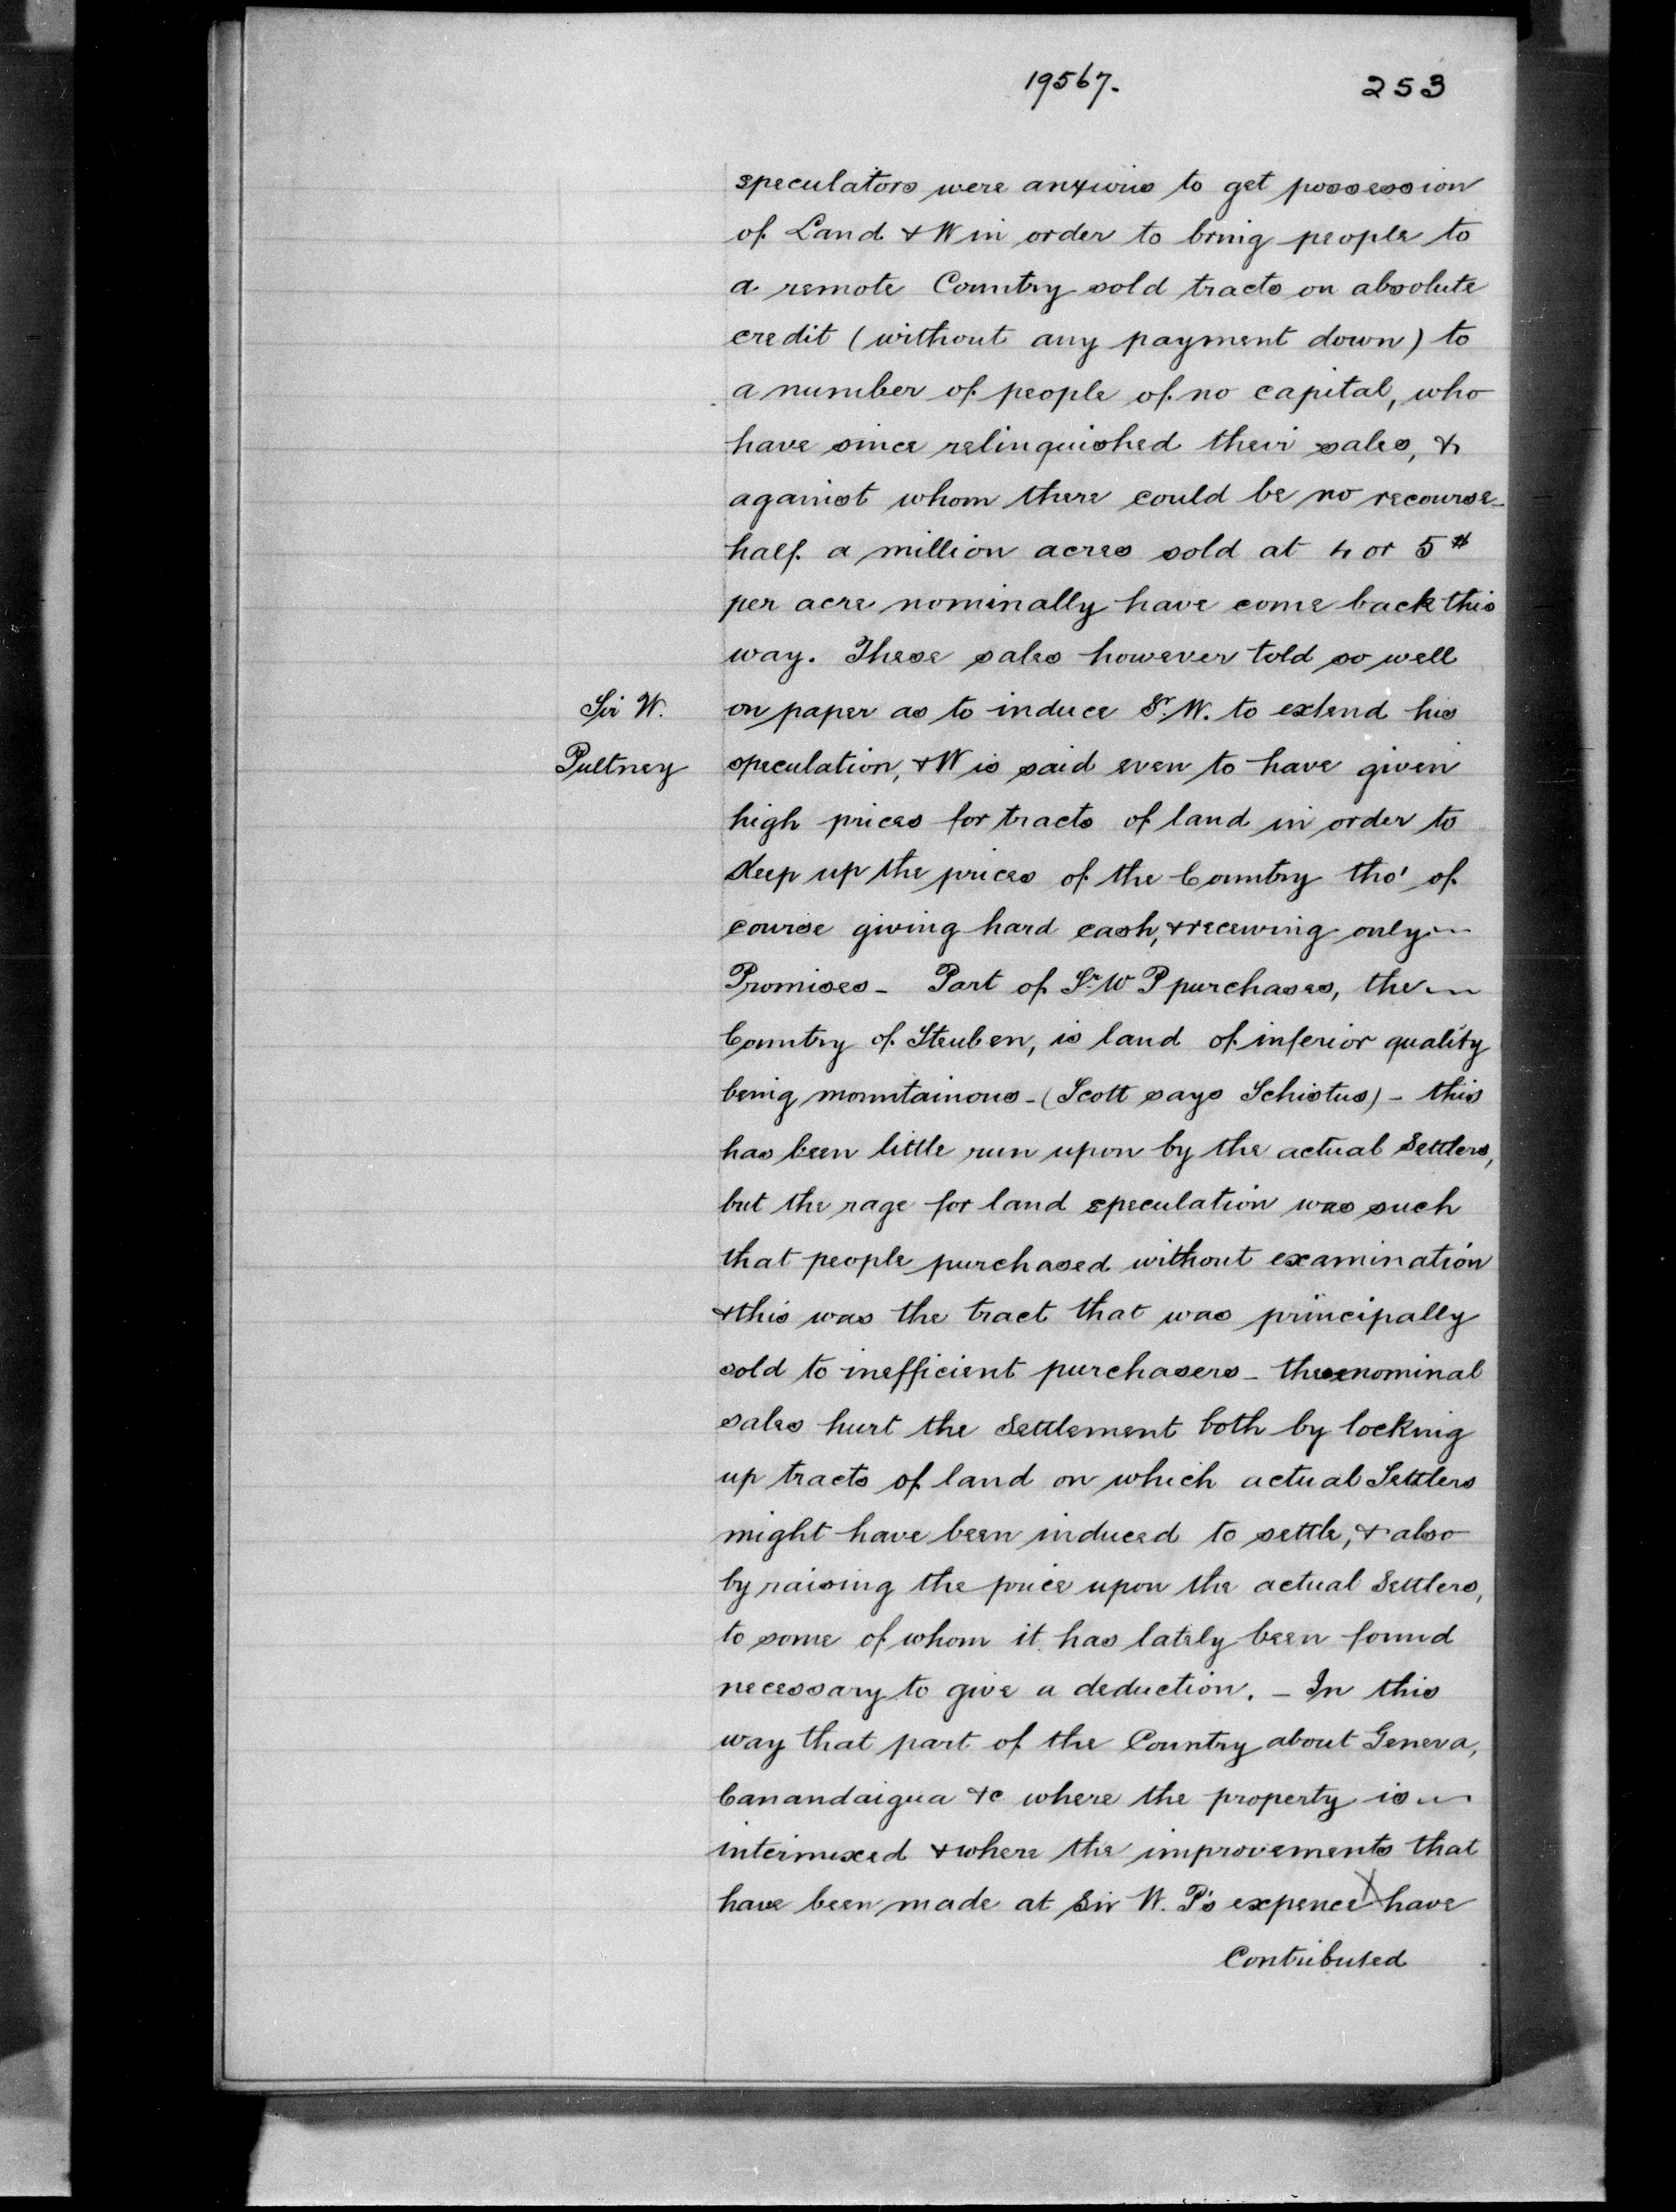 19567. 253
speculators were anxious to get possession
of Land & W in order to bring people to
a remote Country sold tracts on absolute
credit (without any payment down) to
a number of people of no capital, who
have since relinquished their sales, &
against whom there could be no recourse -
half a million acres sold at 4 or 5 $
per acre nominally have come back this
way. These sales however told so well
Sir W. on paper as to induce Sr. W. to extend his
Pultney speculation, & W is said even to have given
high prices for tracts of land in order to
Keep up the prices of the Country tho' of
course giving hard cash, & receiving only
Promises - Part of Sr. W P purchases, the
Country of Steuben, is land of inferior quality
being mountainous - (Scott says Schistus) - this
has been little run upon by the actual Settlers,
but the rage for land speculation was such
that people purchased without examination
& this was the tract that was principally
sold to inefficient purchasers - these nominal
sales hurt the Settlement both by locking
up tracts of land on which actual Settlers
might have been induced to settle, & also
by raising the price upon the actual Settlers,
to some of whom it has lately been found
necessary to give a deduction. - In this
way that part of the Country about Geneva,
Canandaigua &c where the property is
intermixed & where the improvements that
have been made at Sir W. P's expence X have
Contributed